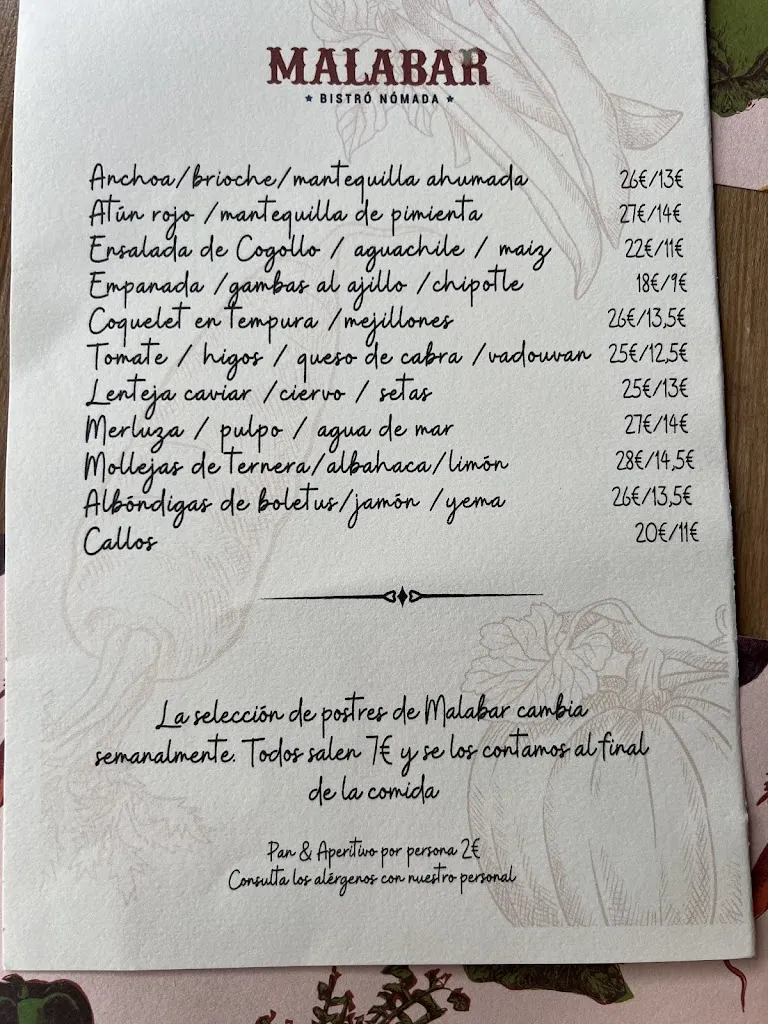 MALABAR
★ BISTRÓ NÓMADA ★
Anchoa/brioche/mantequilla ahumada 26€/13€
Atún rojo /mantequilla de pimienta 27€/14€
Ensalada de Cogollo / aguachile / maiz 22€/11€
Empanada /gambas al ajillo /chipotle 18€/9€
Coquelet en tempura /mejillones 26€/13,5€
Tomate / higos / queso de cabra /vadouvan 25€/12,5€
Lenteja caviar /ciervo / setas 25€/13€
Merluza / pulpo / agua de mar 27€/14€
Mollejas de ternera/albahaca/limón 28€/14,5€
Albóndigas de boletus/jamón /yema 26€/13,5€
Callos 20€/11€
La selección de postres de Malabar cambia
semanalmente. Todos salen 7€ y se los contamos al final
de la comida
Pan & Aperitivo por persona 2€
Consulta los alérgenos con nuestro personal